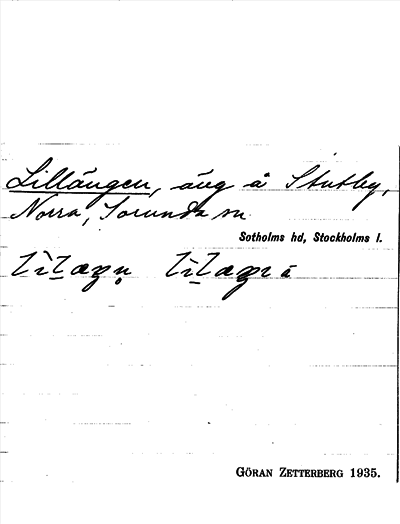 Lillängen, äng å Stutby,
Norra, Sorunda sn
Sotholms hd, Stockholms l.
GÖRAN ZETTERBERG 1935.